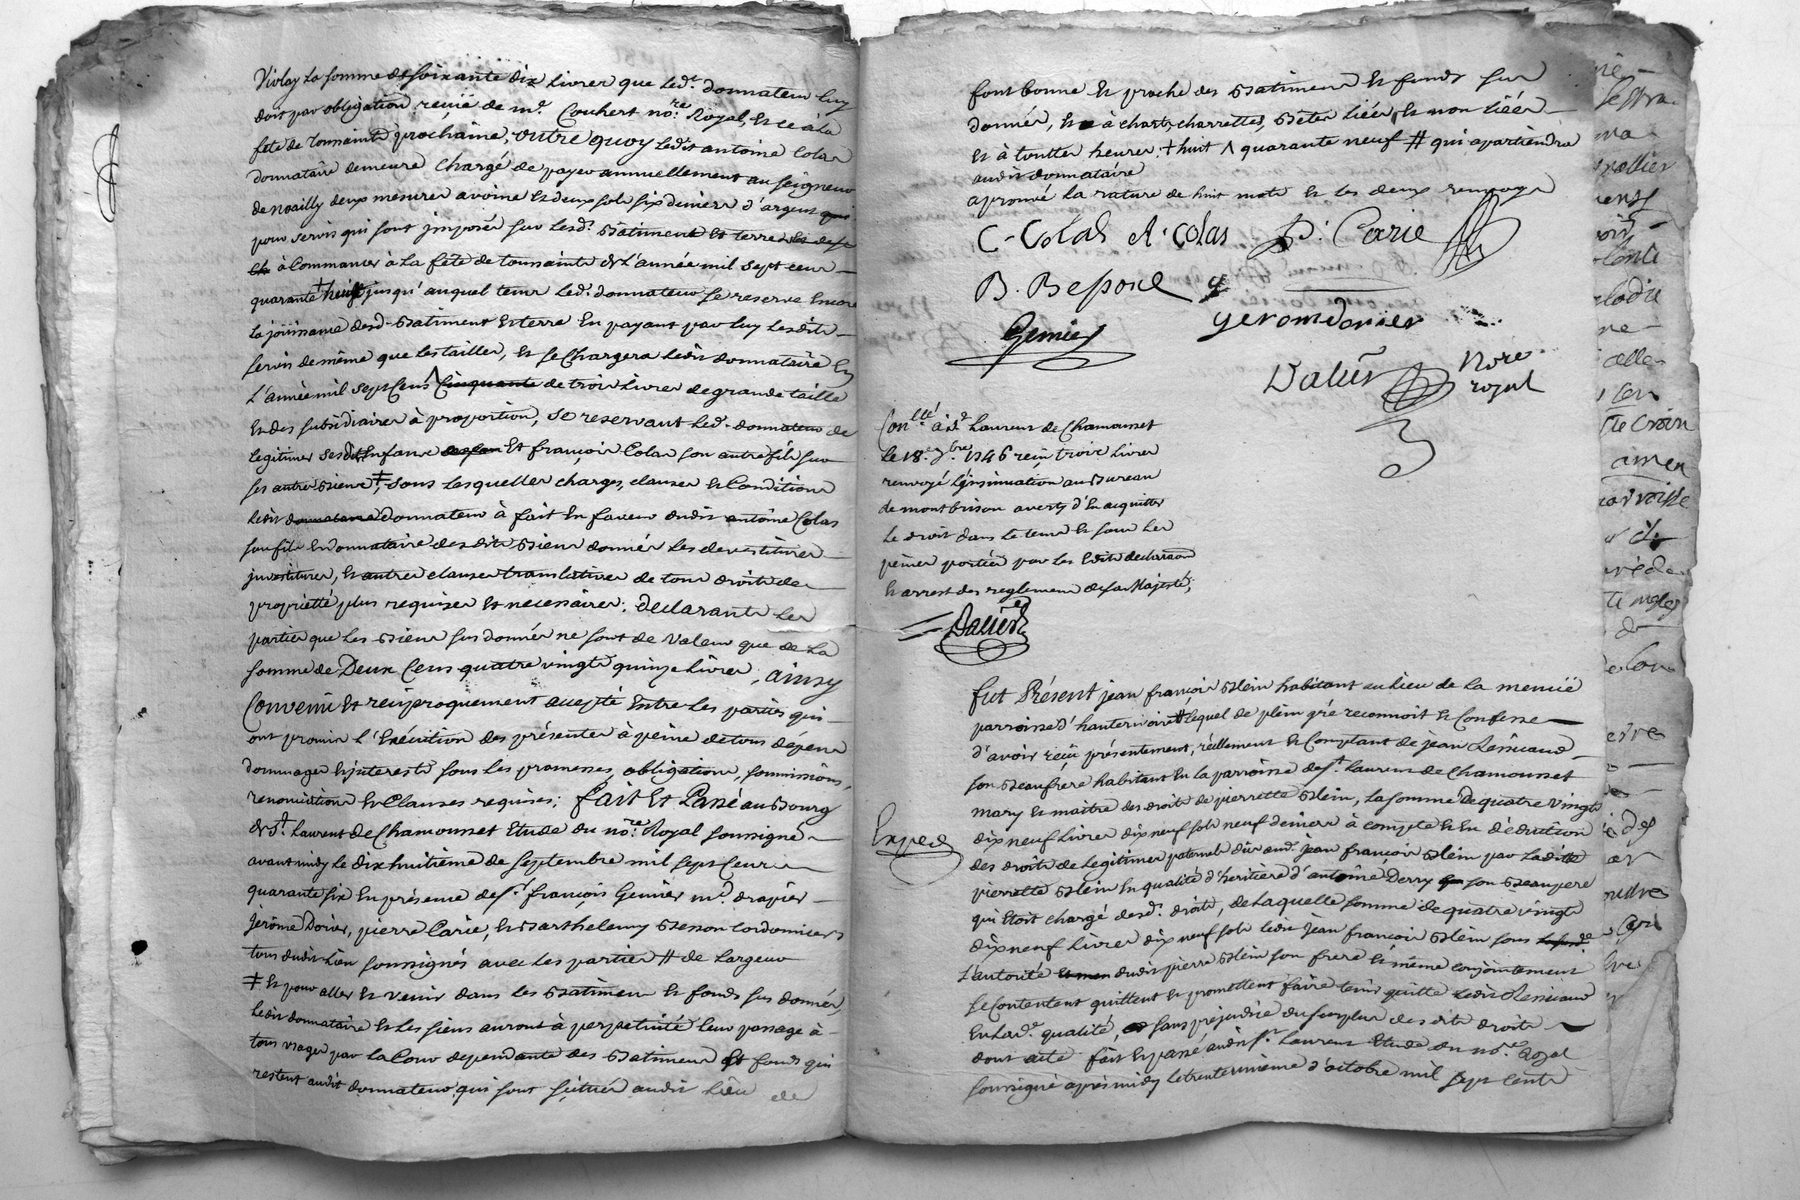 Violay la somme de soixante dix livres que led.t donnateur luy
doit par obligation reçuë de m.e Couhert no.re Royal, et ce à la
fête de toussaints prochaine, outre quoy ledit antoine Colas
donnataire demeure chargé de payer annuellement au seigneur
de noailly deux mesures avoine et deux sols six deniers d'argent
pour servis qui sont jmposés sur lesd. batiments et terre
à Commancer à la fête de toussaints de L'année mil sept cens
quarante + huit jusqu'auquel tems led. donnateur se reserve encore
la joüissance desd. batiment et terre En payant par luy lesdits
servis de même que les tailles, et se Chargera ledit donnataire En
L'année mil sept cens ^ Cinquante de trois livres de grande taille
et des subsidiaires à proportion, se reservant led. donnateur de
legitimer ses dts Enfans et françois Colas son autre fils sur
ses autres biens ‡, sous lesquelles charges, clauses et Conditions
ledit donnateur à fait En faveur dudit antoine Colas
son fils et donnataire desdits biens donnés les devestitures
jnvestitures, et autres clauses translatives de tous droits de
proprietté plus requises et necessaires; declarants les
parties que les biens sus donnés ne sont de valeur que de la
somme de Deux Cens quatre vingts quinze livres; ainsy
Convenu et reciproquement accepté Entre les parties qui
ont promis l'Exécution des présentes à peine de tous dépens
dommages et jnterests sous les promesses, obligations, soumissions,
renonciations et Clauses requises; fait Et Passé au Bourg
de S.t Laurent de Chamousset Etude du no.re Royal soussigné
avant midy le dix huitième de septembre mil sept cens
quarante six En présence de s.r françois Genier m.d drapier
Jerôme Dorier, pierre Carie, et Barthelemy Besson cordonniers
tous dudit lieu soussignés avec les parties # de largeur
‡ et pour aller et venir dans les batimens et fonds sus donnés,
ledit donnataire et les siens auront à perpetuité leur passage à
tous usages par la Cour dependante des batimens et fonds qui
restent audit donnateur, qui sont scitués audit lieu de
font bonne et proche des batimens et fonds sus
donnés, et à chars, charrettes, bêtes liées et non liées
et à touttes heures. + huit ^ quarante neuf # qui apartiendra
audit donnataire
aprouvé la rature de huit mots et les deux renvoys
C. Colas A. Colas P. Carie
B. Besson
Genier gerom dorier
Dalier Nore
royal
Con.llé à S.t Laurent de Chamousset
le 18.e 7bre 1746 reçu trois livres
renvoyé l'jnsinuation au Bureau
de montbrison averty d'En acquitter
le droit dans le tems et sous les
peines portées par les Edits declaraons
et arrest des reglemens de sa Majesté;
Dalier
fut Présent jean françois Blein habitant au lieu de la menuë
parroisse d'hauterivoire lequel de plein gré reconnoit et Confesse
d'avoir reçu présentement, réellement et Comptant de jean
son beaufrere habitant En la parroisse de s.t Laurent de Chamousset
mary et maitre des droits de pierrette Blein, la somme de quatre vingts
Exped
dix neuf livres dix neuf sols neuf deniers à compte et En déduction
des droits de legitimes paternels dus aud. jean françois Blein par laditte
pierrette Blein En qualité d'heritiere d'antoine Derry son beaupere
qui étoit chargé desd. droits, de laquelle somme de quatre vingts
dix neuf livres dix neuf sols ledit jean françois Blein sous
L'autorité dudit pierre Blein son frere et même conjointement
se Contentent quittent et promettent faire tenir quitte ledit
En lad. qualité, sans prejudice du surplus desdits droits
dont acte fait Et passé audit s.t Laurent Etude du no.re Royal
soussigné après midy le trentunième d'octobre mil sept cents